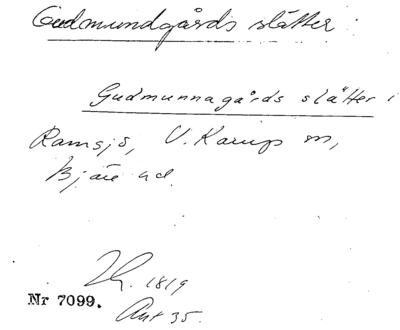 Gudmundgårds slåtter
Gudmunnagårds slåtter i
Ramsjö, V. Karup sn,
Bjäre hd.
1819
Nr 7099.
Ant 35.